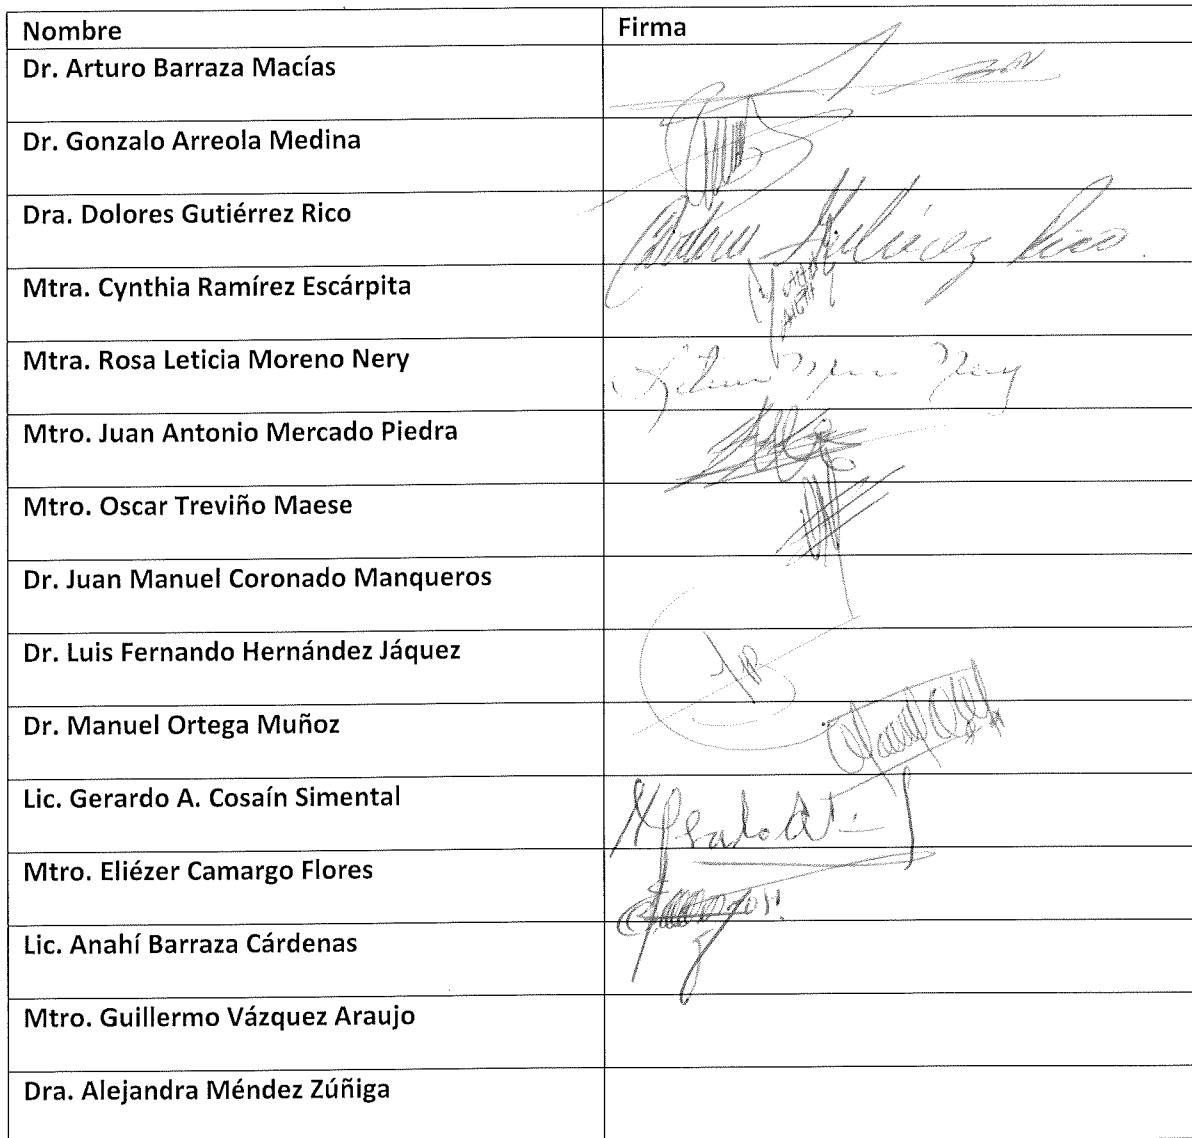 Nombre Firma
Dr. Arturo Barraza Macías
Dr. Gonzalo Arreola Medina
Dra. Dolores Gutiérrez Rico Gutiérrez Rico
Mtra. Cynthia Ramírez Escárpita
Mtra. Rosa Leticia Moreno Nery
Mtro. Juan Antonio Mercado Piedra
Mtro. Oscar Treviño Maese
Dr. Juan Manuel Coronado Manqueros
Dr. Luis Fernando Hernández Jáquez
Dr. Manuel Ortega Muñoz
Lic. Gerardo A. Cosaín Simental
Mtro. Eliézer Camargo Flores
Lic. Anahí Barraza Cárdenas
Mtro. Guillermo Vázquez Araujo
Dra. Alejandra Méndez Zúñiga